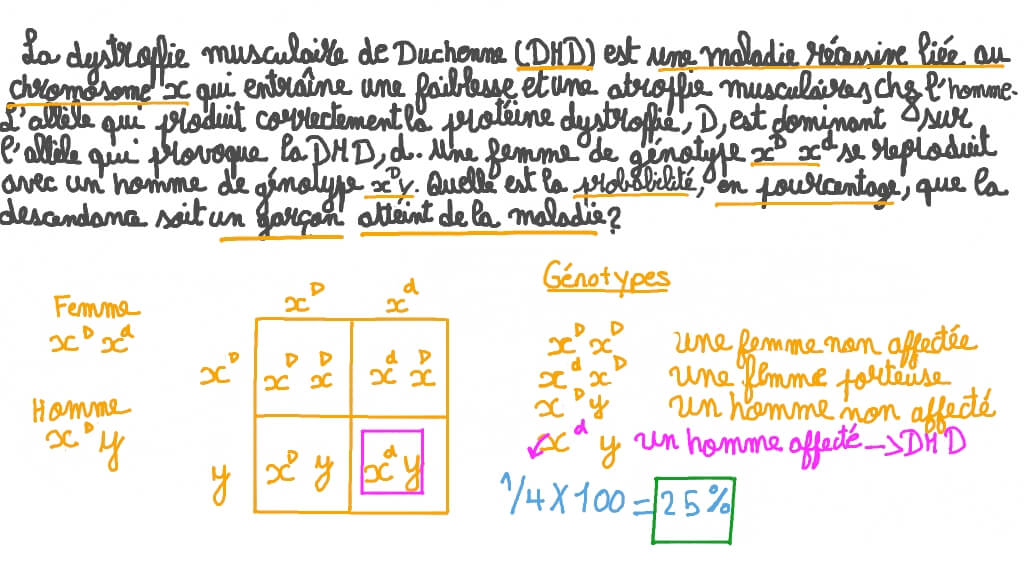 La dystroffie musculaire de Duchenne (DHD) est une maladie récessive liée au
chromosome x qui entraîne une faiblesse et une atroffie musculaires chez l'homme.
L'allèle qui produit correctement la protéine dystroffie, D, est dominant sur
l'allèle qui provoque la DHD, d. Une femme de génotype x^D x^d se reproduit
avec un homme de génotype x^D y. Quelle est la probabilité, en pourcentage, que la
descendance soit un garçon atteint de la maladie?
Génotypes
Femme
x^D x^d
Homme
x^D y
x^D x^d
x^D x^D x^D x^d x^D
y x^D y x^d y
x^D x^D une femme non affectée
x^d x^D une femme porteuse
x^D y un homme non affecté
x^d y un homme affecté → DHD
1/4 X 100 = 25%